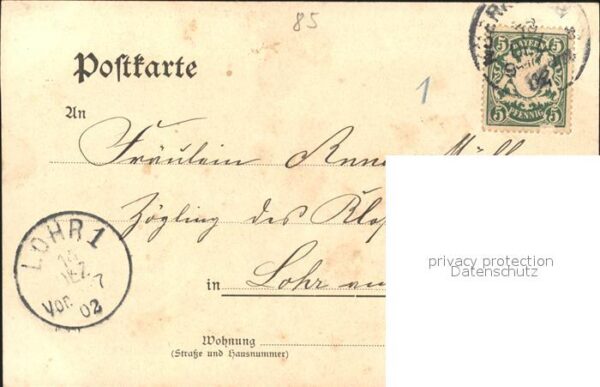 85
Postkarte
1
BAYERN
5 5
PFENNIG
5 5
02
An
Fräulein Anna
Zögling des
in Lohr
LOHR 1
DEZ
7
Vor.
02
privacy protection
Datenschutz
Wohnung
(Straße und Hausnummer)